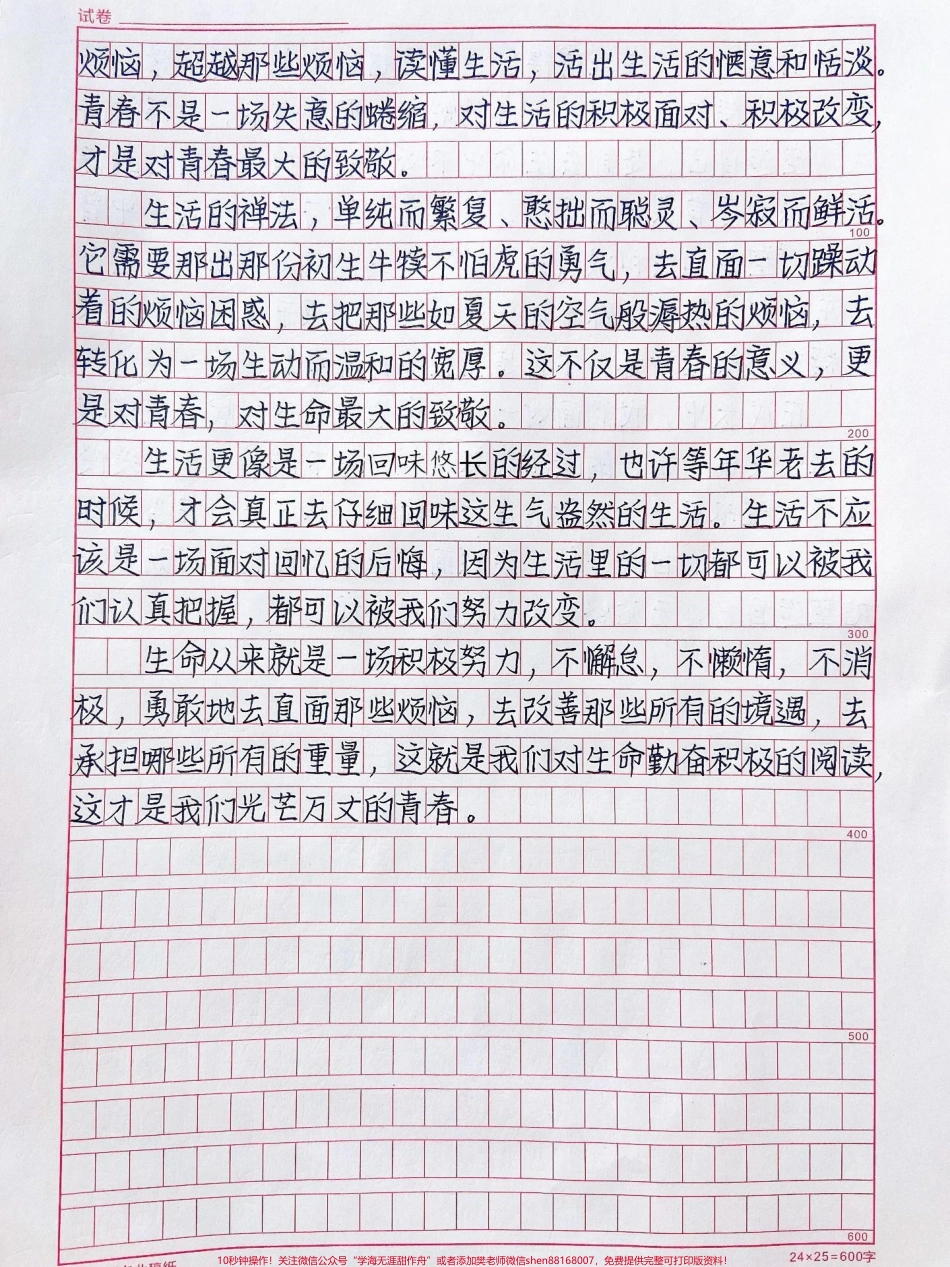 试卷
烦恼，超越那些烦恼，读懂生活，活出生活的惬意和恬淡。
青春不是一场失意的蜷缩，对生活的积极面对、积极改变，
才是对青春最大的致敬。
生活的禅法，单纯而繁复、憨拙而聪灵、岑寂而鲜活。
100
它需要那出那份初生牛犊不怕虎的勇气，去直面一切躁动
着的烦恼困惑，去把那些如夏天的空气般溽热的烦恼，去
转化为一场生动而温和的宽厚。这不仅是青春的意义，更
是对青春，对生命最大的致敬。
200
生活更像是一场回味悠长的经过，也许等年华老去的
时候，才会真正去仔细回味这生气盎然的生活。生活不应
该是一场面对回忆的后悔，因为生活里的一切都可以被我
们认真把握，都可以被我们努力改变。
300
生命从来就是一场积极努力，不懈怠，不懒惰，不消
极，勇敢地去直面那些烦恼，去改善那些所有的境遇，去
承担哪些所有的重量，这就是我们对生命勤奋积极的阅读，
这才是我们光芒万丈的青春。
400
500
600
24×25=600字
10秒钟操作！关注微信公众号“学海无涯甜作舟”或者添加樊老师微信shen88168007，免费提供完整可打印版资料！